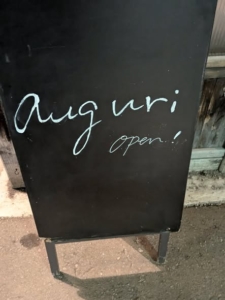 auguri
open!